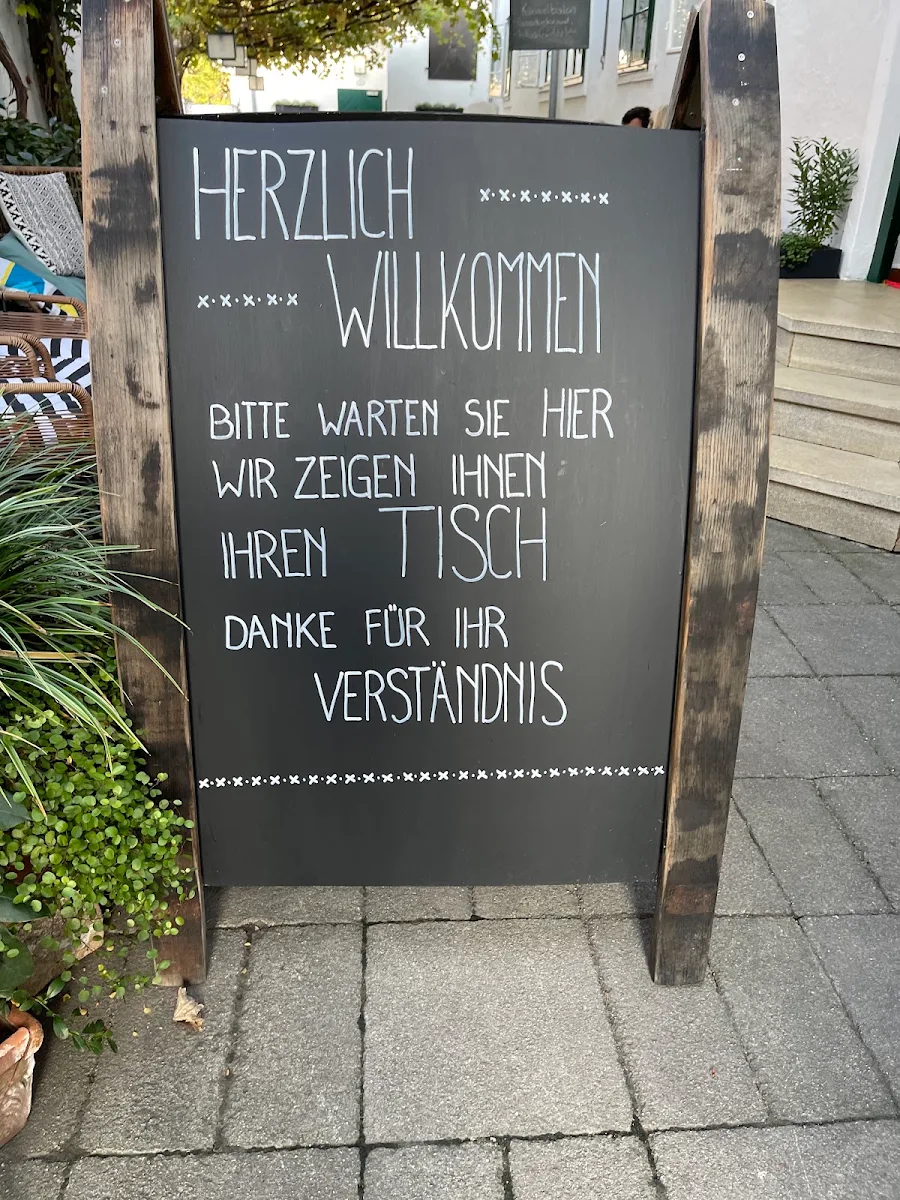 HERZLICH
WILLKOMMEN
BITTE WARTEN SIE HIER
WIR ZEIGEN IHNEN
IHREN TISCH
DANKE FÜR IHR
VERSTÄNDNIS